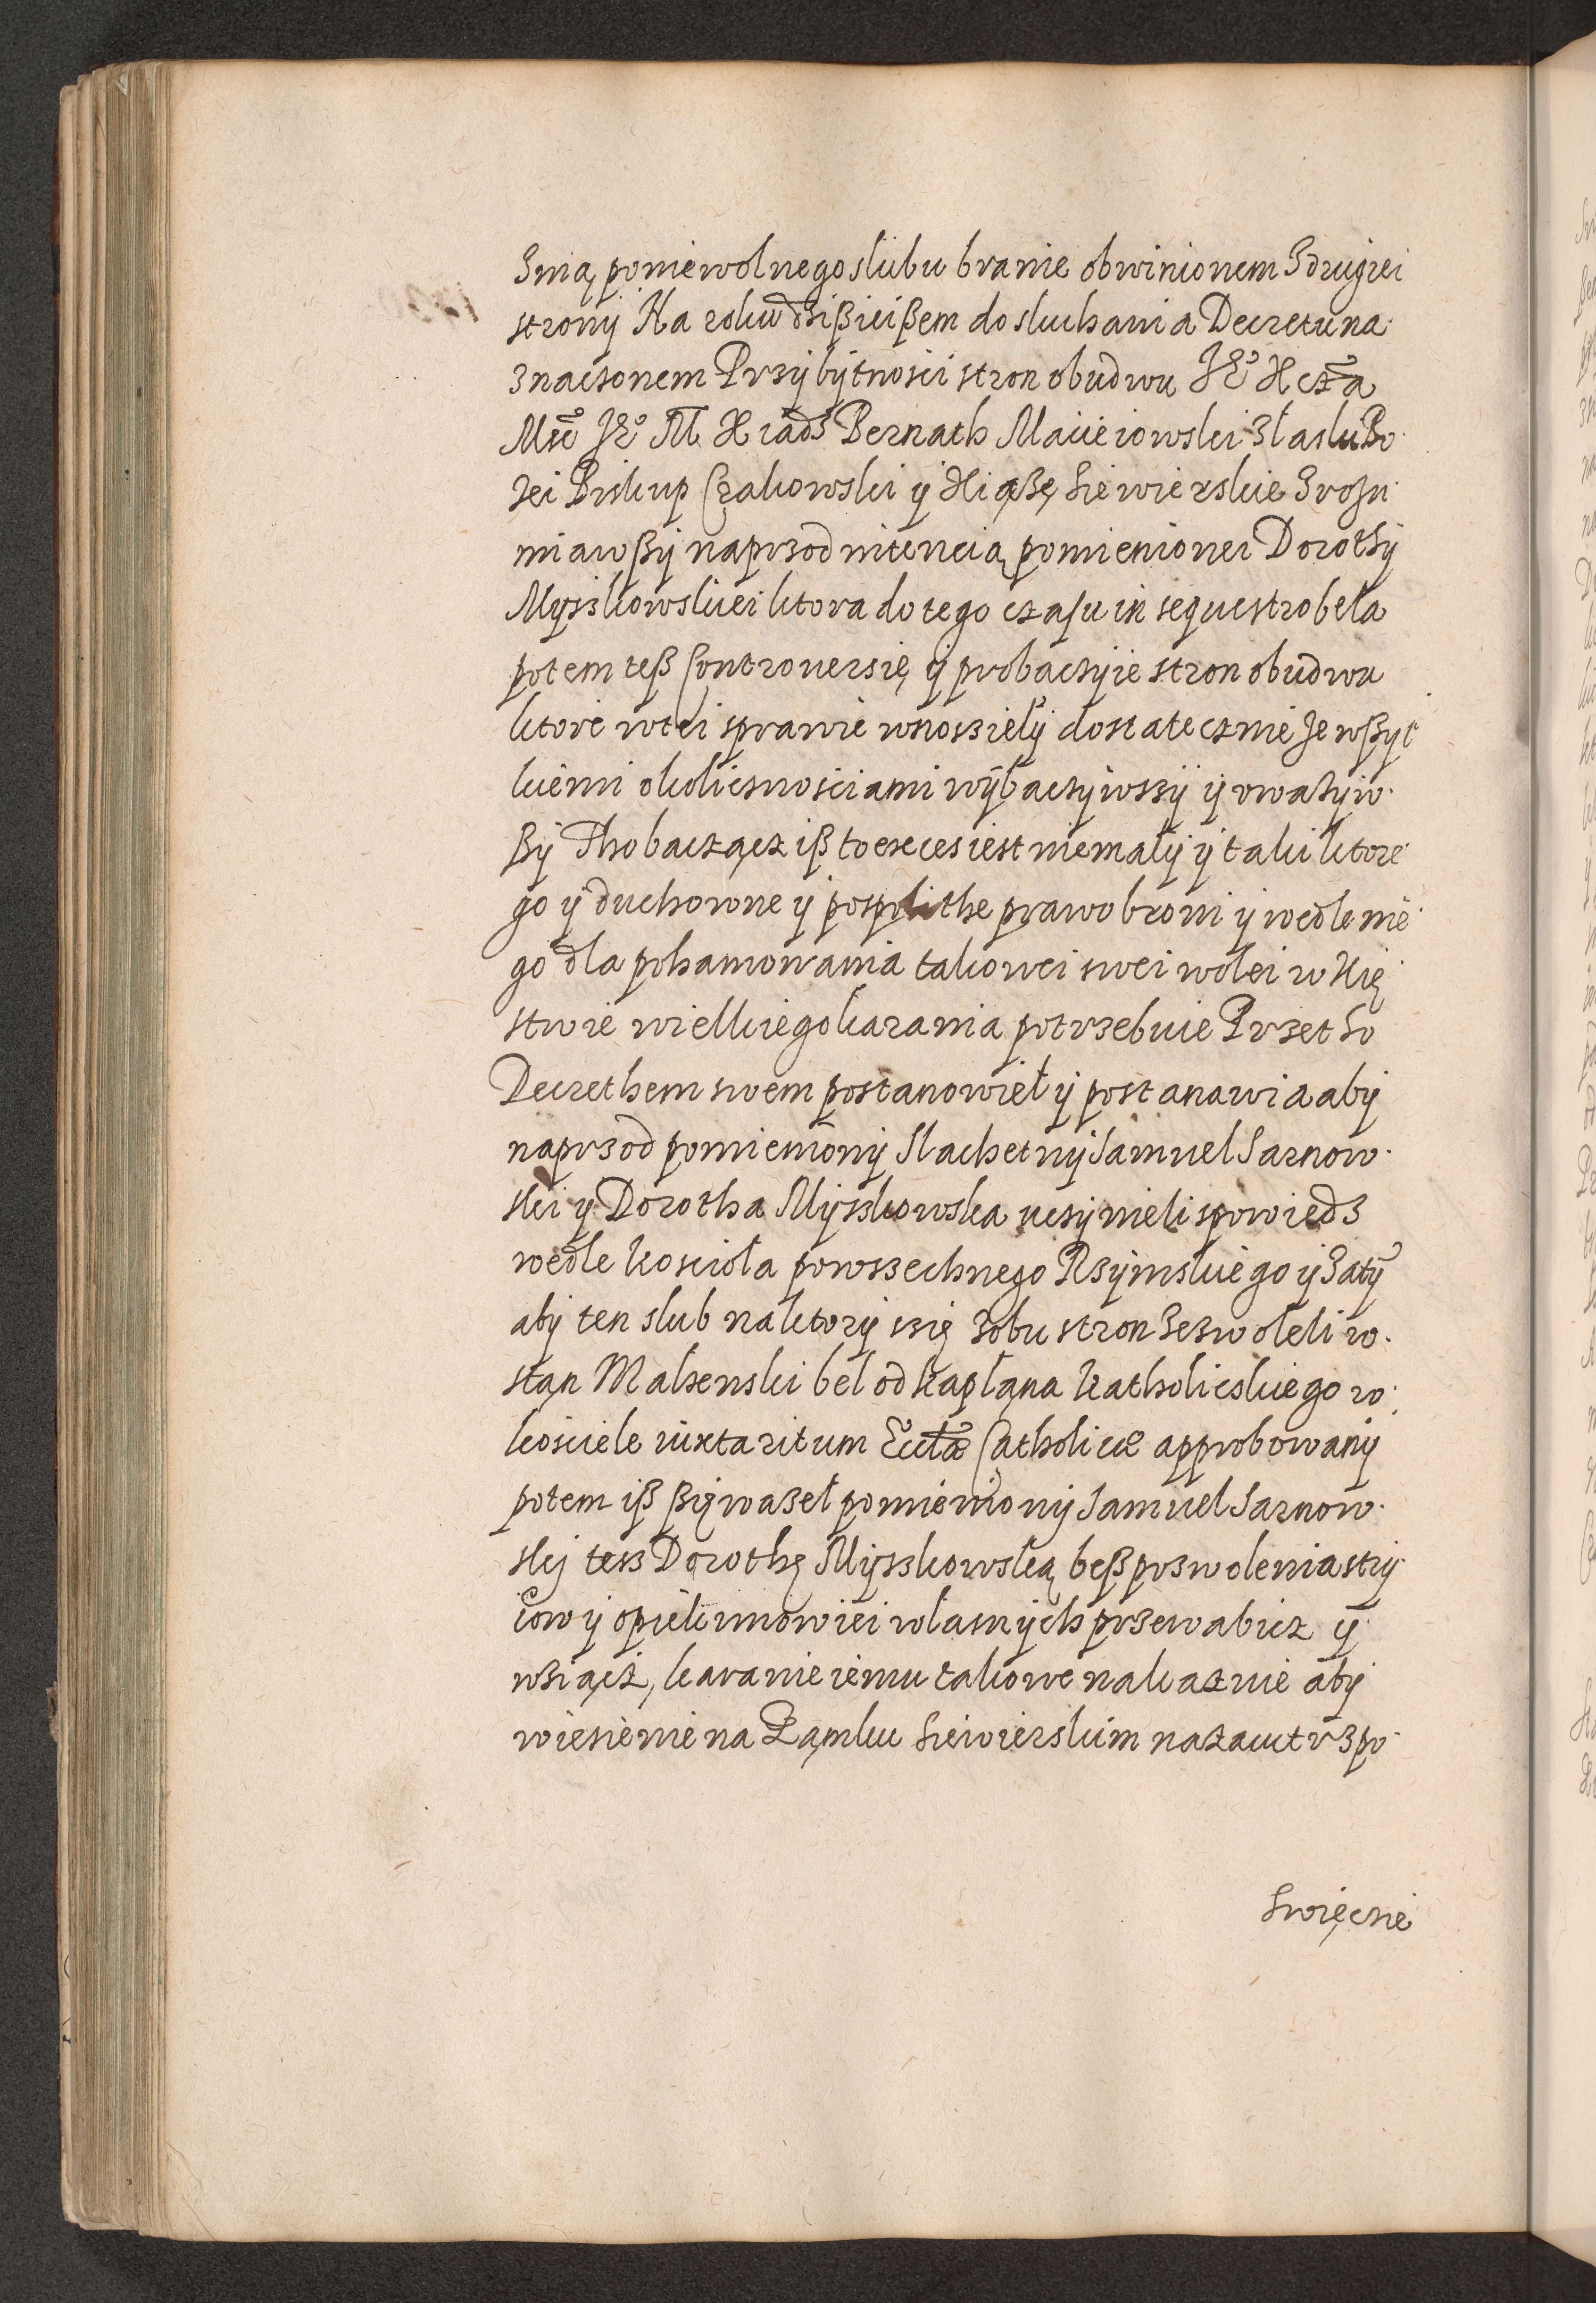 Znią poniewolnego slubu branie obwinionem Zdrugiei
strony Na roku dzisieiszem do sluchania Decretu na
znaczonem Przy bytnosci stron obudwu
Bernath Macieiowski Zlaski Bo
zei Biskup Crakowski y Xiąże Siewierskie Zrozu
miawszy naprzod intencią pomienionei Dorothy
Myszkowskiei ktora do tego czasu in sequestro beła
potem tesz Controuersię y probacyie stron obudwu
ktore wtei sprawie wnosziely dostatecznie Ze wszyt
kiemi okolicznosciami wybaczywszy y vwazyw
szy Tho baczącz isz to exces iest niemały y taki ktore
go y duchowne y pospolithe prawo broni y wedle nie
go dla pohamowania takowei swei wolei w Xię
stwie wielkiego karania potrzebuie Przetho
Decrethem swem postanowieł y postanawia aby
naprzod pomieniony Slachetny Samuel Sarnow
ski y Dorotha Myszkowska uczynieli spowiedz
wedle kosciola powszechnego Rzymskiego y Zaty
aby ten slub naktory szię Zobu stron Zezwoleli w
stan Malzenski bel od kaplana katholiczkiego w
kosciele iuxta ritum Eccłæ Catholicæ approbowany
potem isz szię wazeł pomieniony Samuel Sarnow
sky tesz Dorothę Myszkowską besz pozwolenia stry
iow y opiekunow iei wlasnych przewabicz y
wziącz, karanie iemu takowe nakazuie aby
wiezienie na Zamku Siewierskim nazaiutrz po
Swięcie